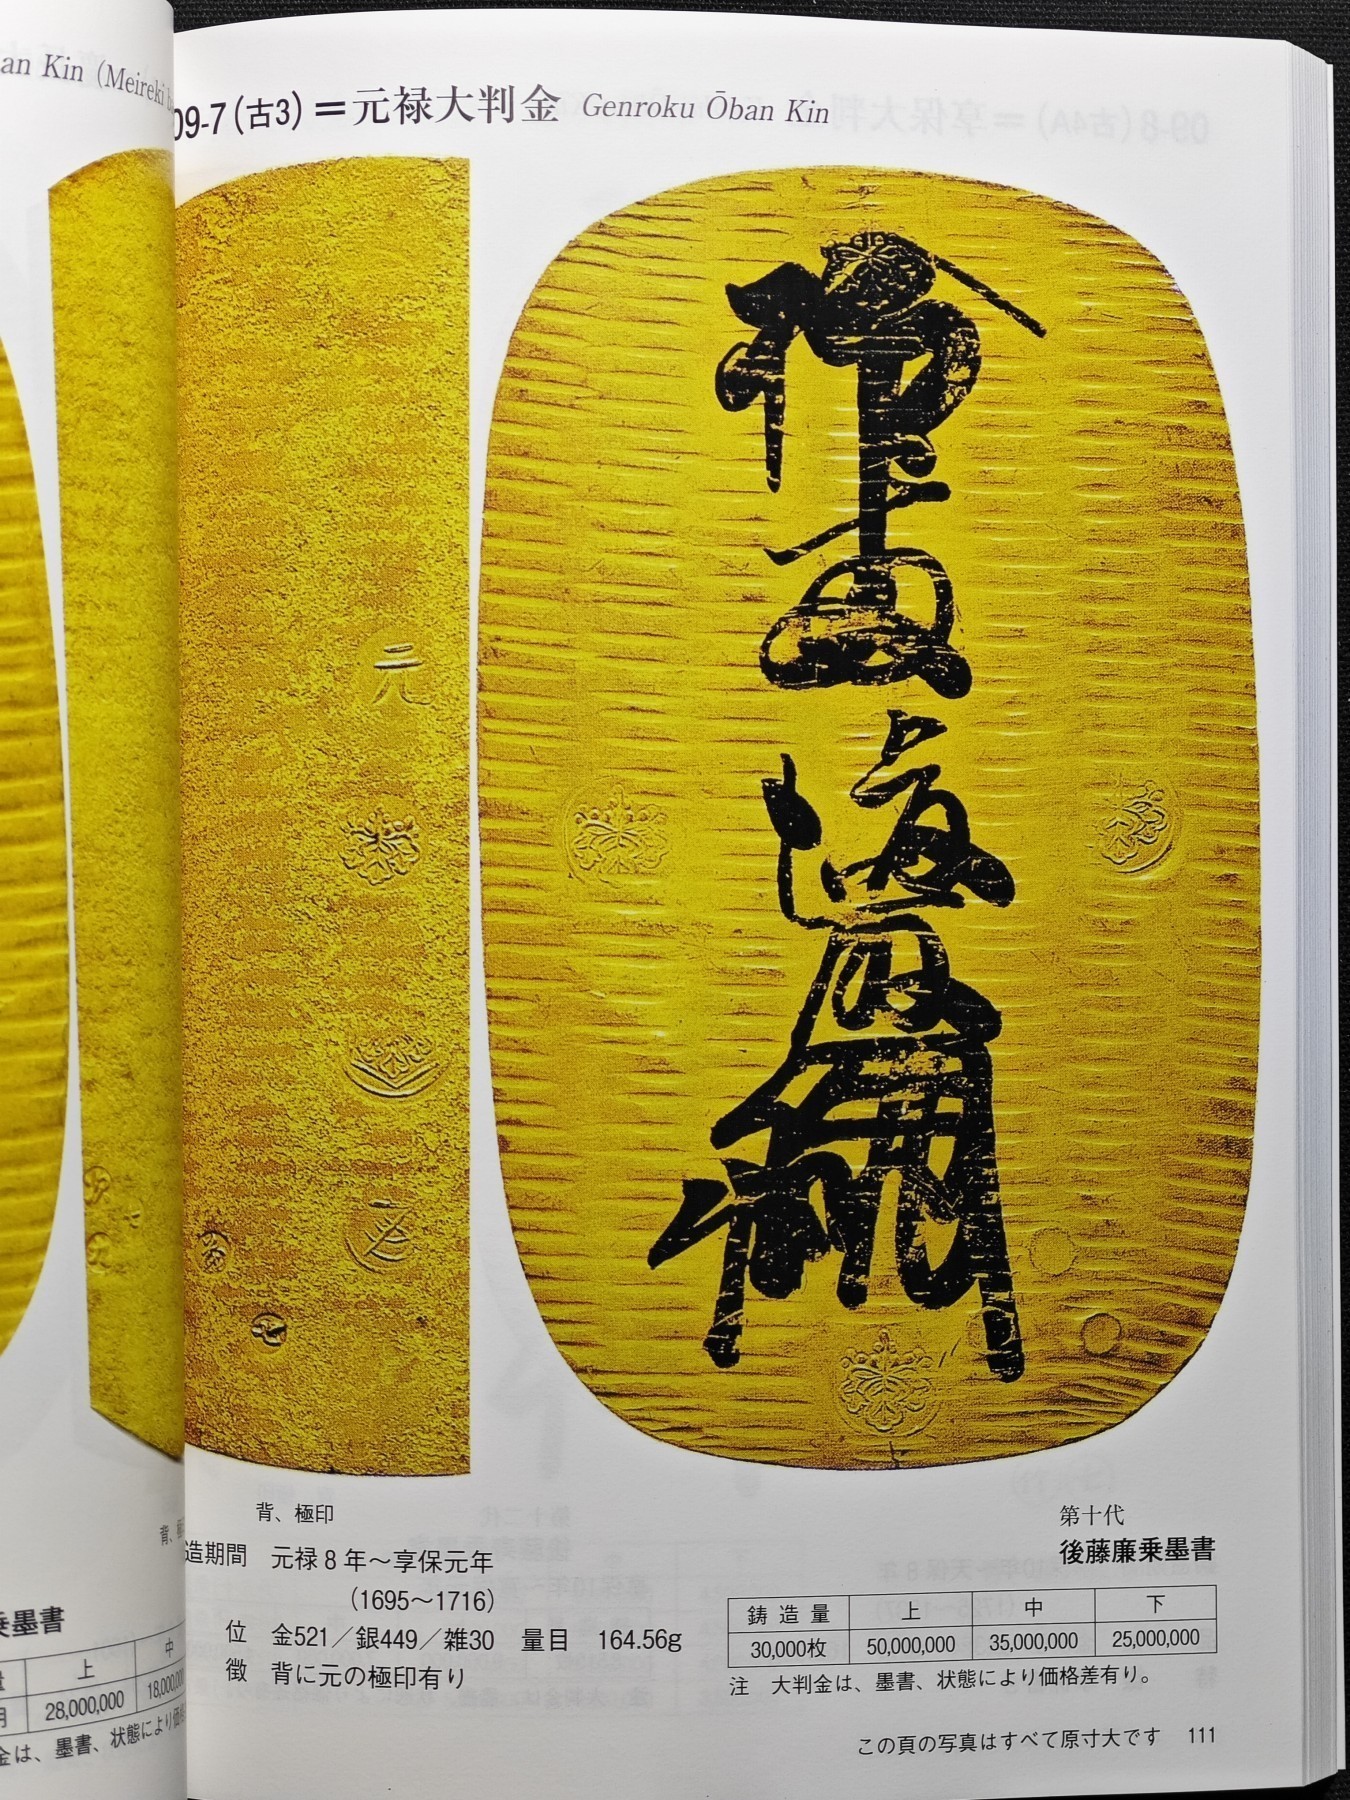 an Kin (Meireki
09-7(古3)＝元禄大判金 Genroku Ōban Kin
元
背、極印
造期間 元禄8年～享保元年
(1695～1716)
位 金521／銀449／雑30 量目 164.56g
徴 背に元の極印有り
第十代
後藤廉乗墨書
鋳造量 上 中 下
30,000枚 50,000,000 35,000,000 25,000,000
注 大判金は、墨書、状態により価格差有り。
この頁の写真はすべて原寸大です 111
乗墨書
上 中
28,000,000 18,000,000
金は、墨書、状態により価